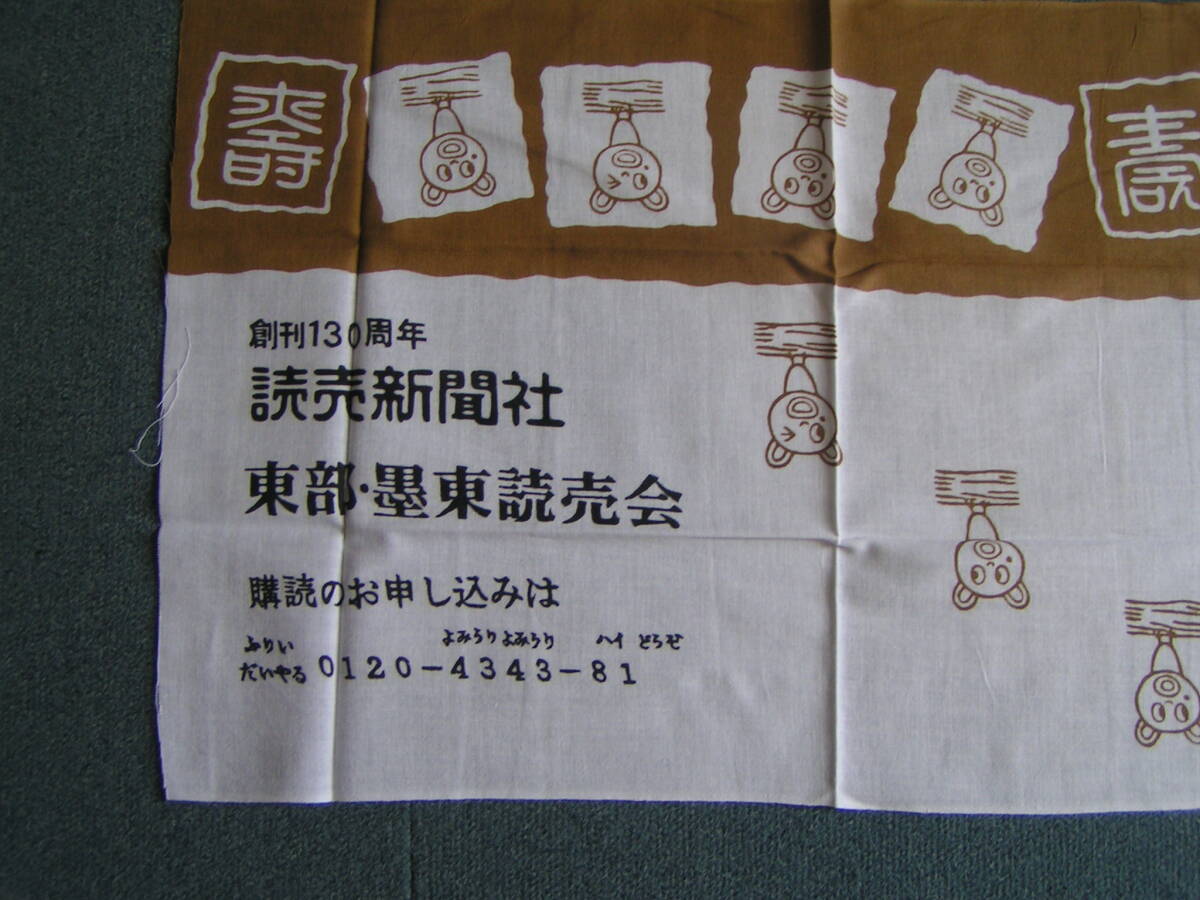 創刊130周年
読売新聞社
東部・墨東読売会
購読のお申し込みは
ふりい よみうり よみうり ハイ どうぞ
だいやる 0120-4343-81